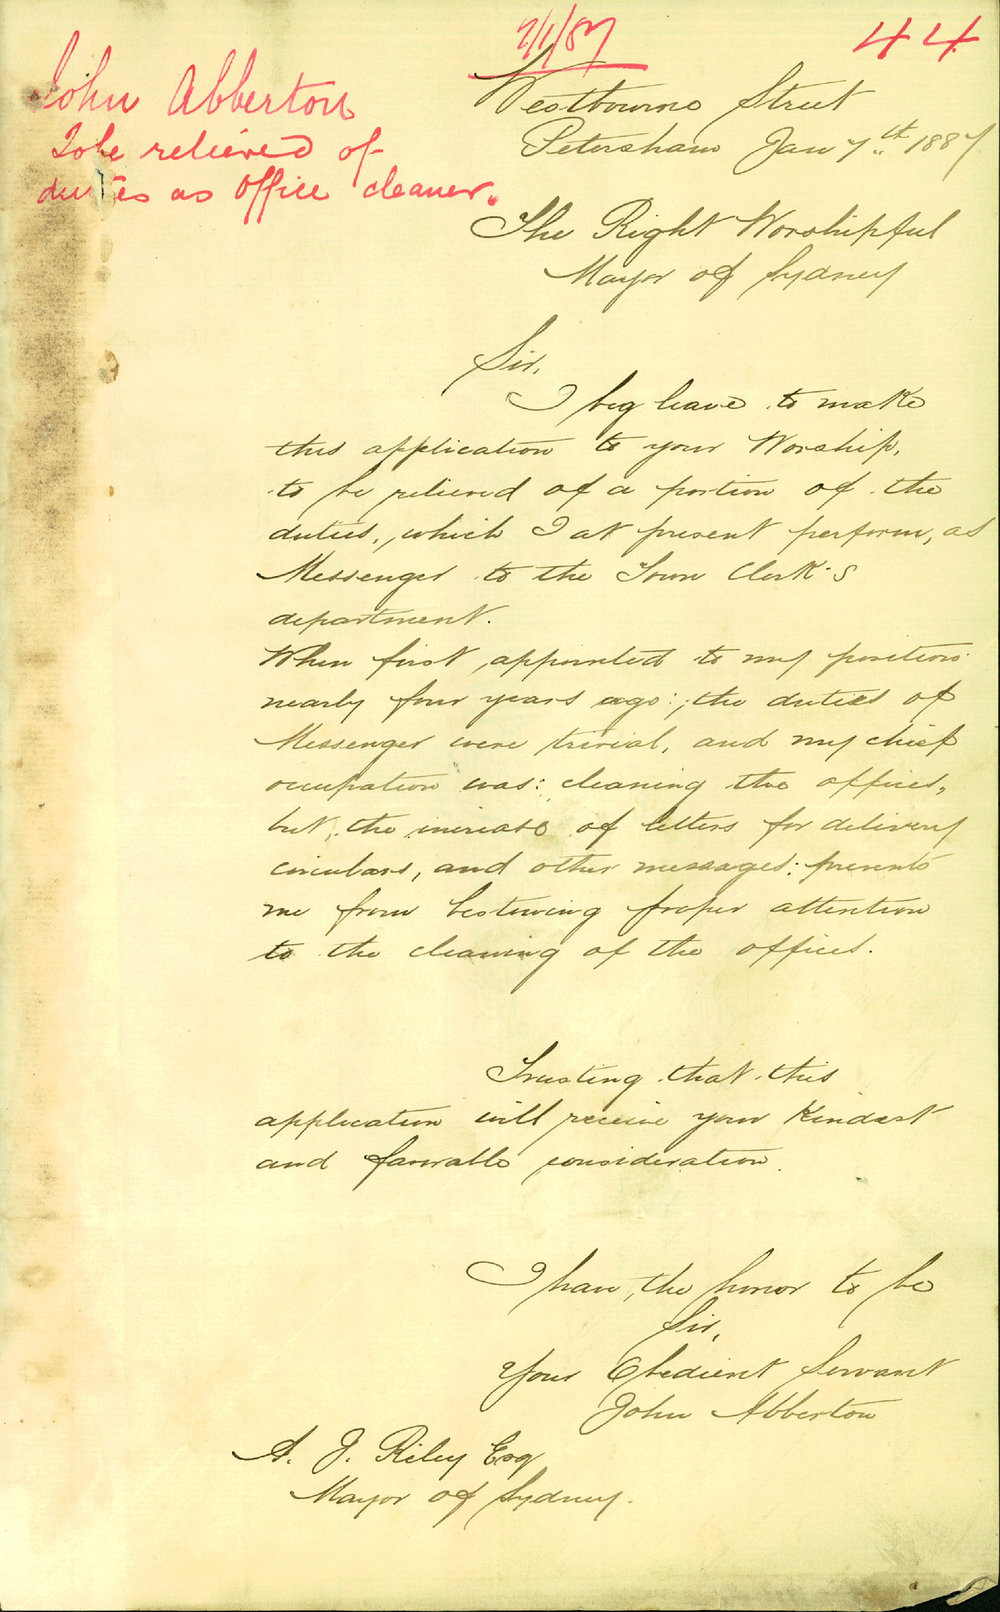 7/1/87
44
John Abberton
To be relieved of
duties as office cleaner.
Westbourne Street
Petersham Jan 7th 1887
The Right Worshipful
Mayor of Sydney
Sir,
I beg leave to make
this application to your Worship,
to be relieved of a portion of the
duties, which I at present perform, as
Messenger to the Town Clerk's
department.
When first appointed to my position
nearly four years ago; the duties of
Messenger were trivial, and my chief
occupation was: cleaning the offices,
but, the increase of letters for delivery
circulars, and other messages: prevents
me from bestowing proper attention
to the cleaning of the offices.
Trusting that this
application will receive your kindest
and favorable consideration.
I have, the honor to be
Sir,
Your Obedient Servant
John Abberton
A. J. Riley Esq
Mayor of Sydney.